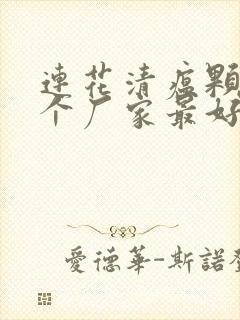 連花清瘟顆
个厂家最好
愛德華-斯諾登